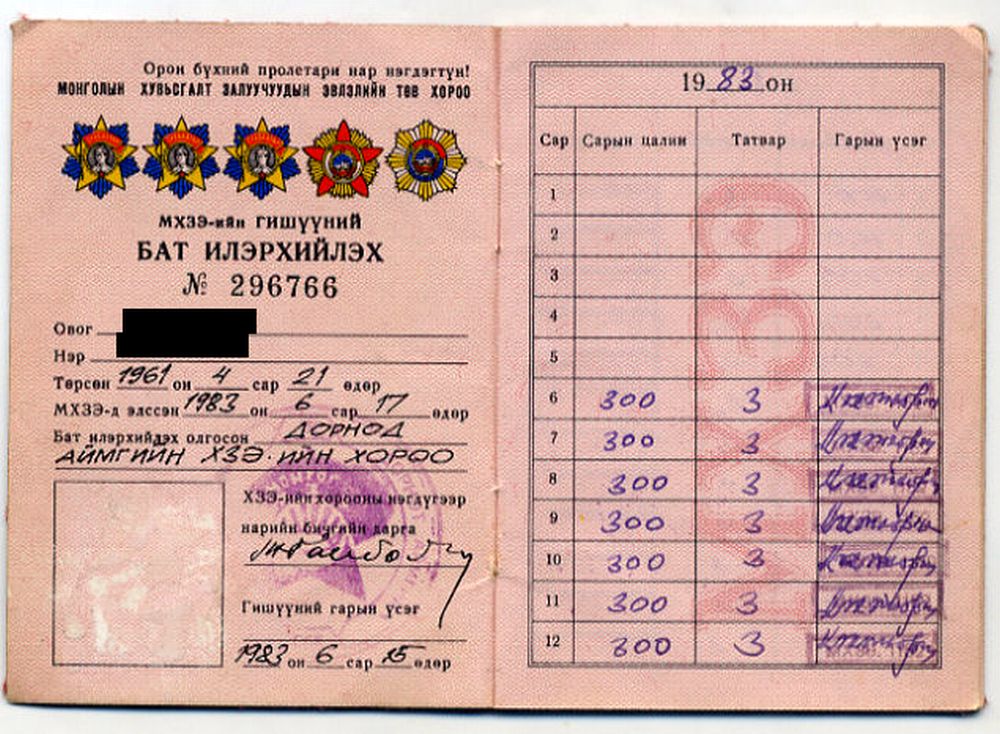 Орон бүхний пролетари нар нэгдэгтүн!
МОНГОЛЫН ХУВЬСГАЛТ ЗАЛУУЧУУДЫН ЭВЛЭЛИЙН ТӨВ ХОРОО
МХЗЭ-ийн ГИШҮҮНИЙ
БАТ ИЛЭРХИЙЛЭХ
№ 296766
Овог
Нэр
Төрсөн 1961 он 4 сар 21 өдөр
МХЗЭ-д элссэн 1983 он 6 сар 17 өдөр
Бат илэрхийлэх олгосон ДОРНОД
АЙМГИЙН ХЗЭ-ИЙН ХОРОО
ХЗЭ-ийн хорооны нэгдүгээр
нарийн бичгийн дарга
Гишүүний гарын үсэг
1983 он 6 сар 25 өдөр
1983 он
Сар Сарын цалин Татвар Гарын үсэг
1
2
3
4
5
6 300 3
7 300 3
8 300 3
9 300 3
10 300 3
11 300 3
12 300 3